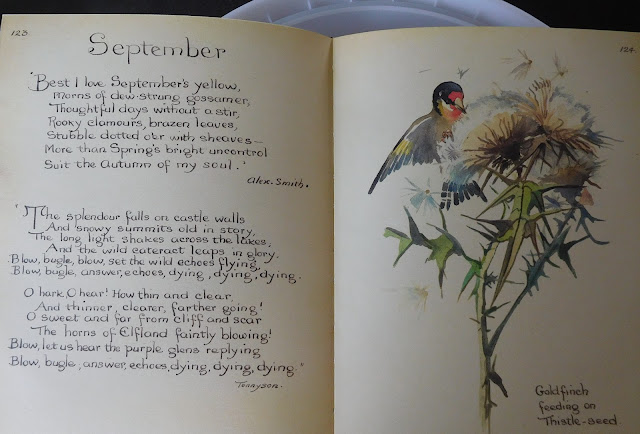 123.
September
'Best I love September's yellow,
Morns of dew-strung gossamer,
Thoughtful days without a stir,
Rooky clamours, brazen leaves,
Stubble dotted o'er with sheaves—
More than Spring's bright uncontrol
Suit the Autumn of my soul.'
Alex. Smith.
"The splendour falls on castle walls
And snowy summits old in story,
The long light shakes across the lakes,
And the wild cataract leaps in glory.
Blow, bugle, blow, set the wild echoes flying,
Blow, bugle, answer, echoes, dying, dying, dying.
O hark, O hear! How thin and clear,
And thinner, clearer, farther going!
O sweet and far from cliff and scar
The horns of Elfland faintly blowing!
Blow, let us hear the purple glens replying
Blow, bugle, answer, echoes, dying, dying, dying."
Tennyson.
124.
Goldfinch
feeding on
Thistle-seed.